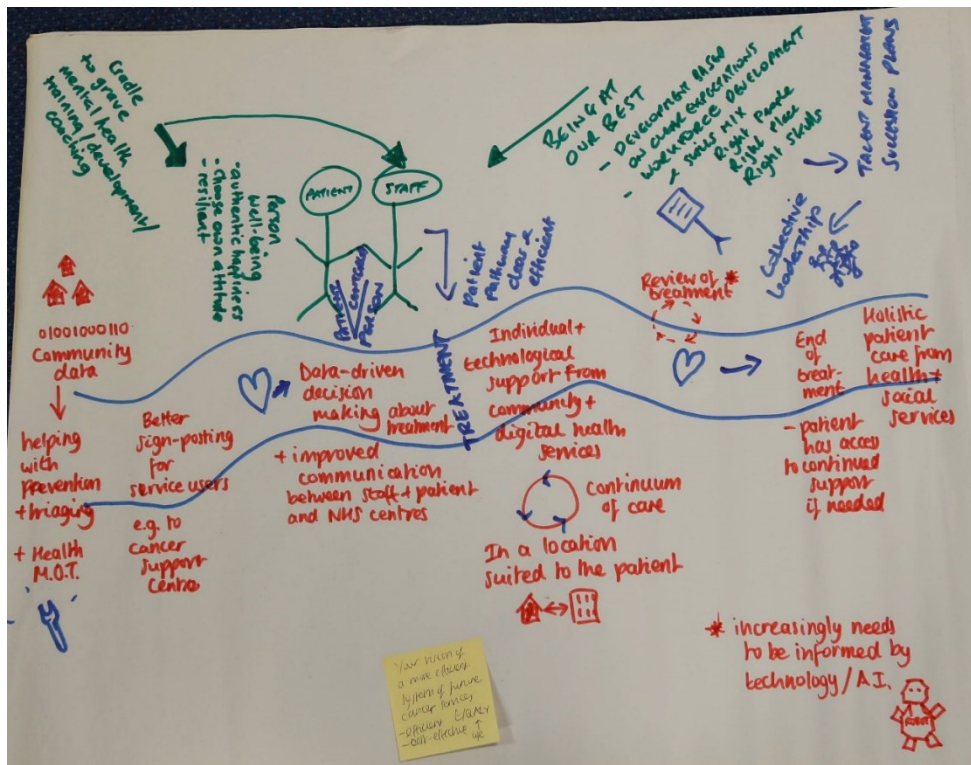 Cradle
to grave
mental health
training/development/
coaching
Person
well-being
- authentic happiness
- choose own attitude
- resilient
PATIENT
STAFF
PATIENT
CENTERED
PERSON
BEING AT
OUR BEST
- DEVELOPMENT BASED
ON CLEAR EXPECTATIONS
- WORKFORCE DEVELOPMENT
SKILLS MIX
Right People
Right Place
Right Skills
TALENT MANAGEMENT
SUCCESSION PLANS
Collective
Leadership
Patient
Pathway
clear &
efficient
TREATMENT
01001000110
Community
data
helping
with
prevention
+ triaging
+ Health
M.O.T.
Better
sign-posting
for
service users
e.g. to
cancer
support
centre
Data-driven
decision
making about
treatment
+ improved
communication
between staff + patient
and NHS centres
Individual +
technological
support from
community +
digital health
services
continuum
of care
In a location
suited to the patient
Review of *
treatment
End
of
treat-
ment
- patient
has access
to continued
support
if needed
Holistic
patient
care from
health +
social
services
* increasingly needs
to be informed by
technology/A.I.
ROBOT
Your vision of
a more efficient
system of future
cancer services
- efficient
- cost-effective